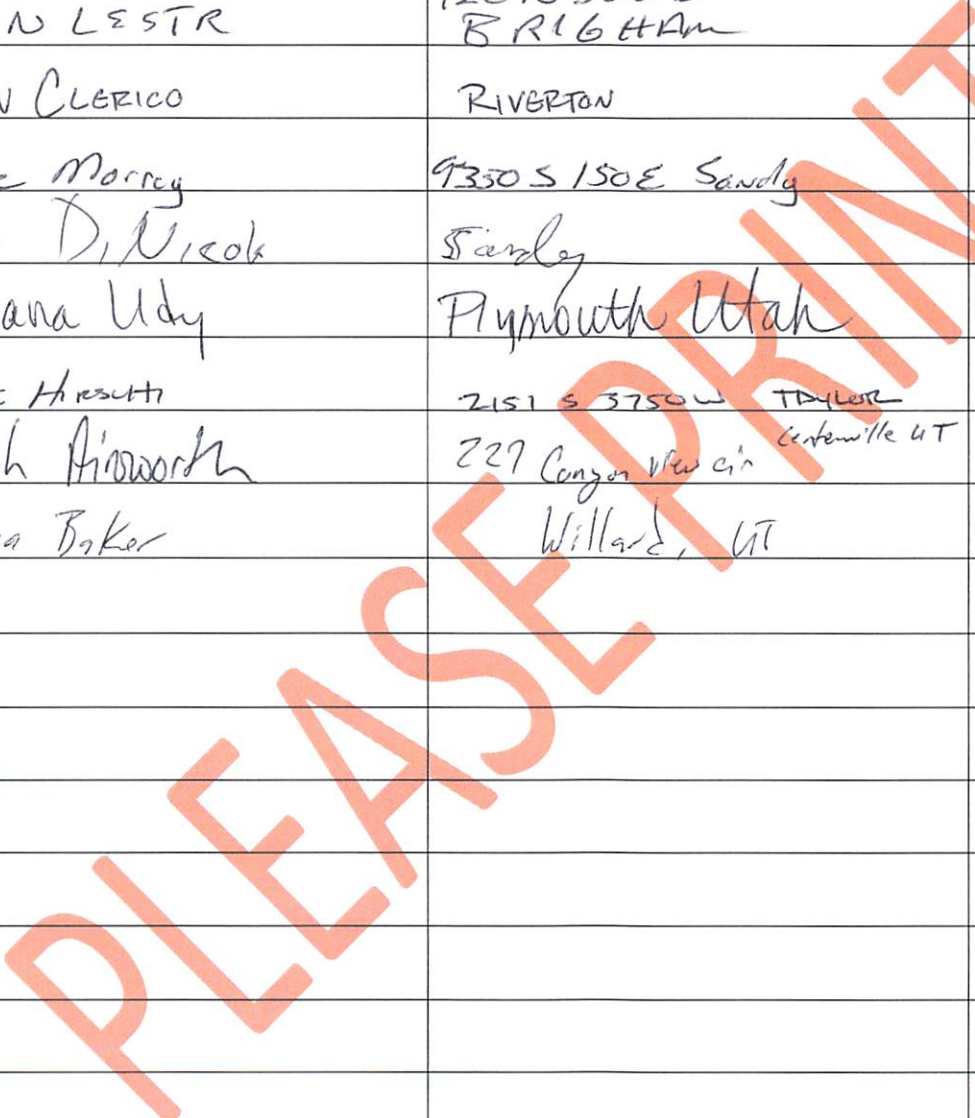 N LESTR BRIGHAM
CLERICO RIVERTON
Morrey 9350 S 150 E Sandy
DiNicola Sandy
ana Udy Plymouth Utah
Hirschi 2151 S 3750 W TAYLOR
h Ainsworth 227 Canyon View cir Centerville UT
a Baker Willard, UT
PLEASE PRINT